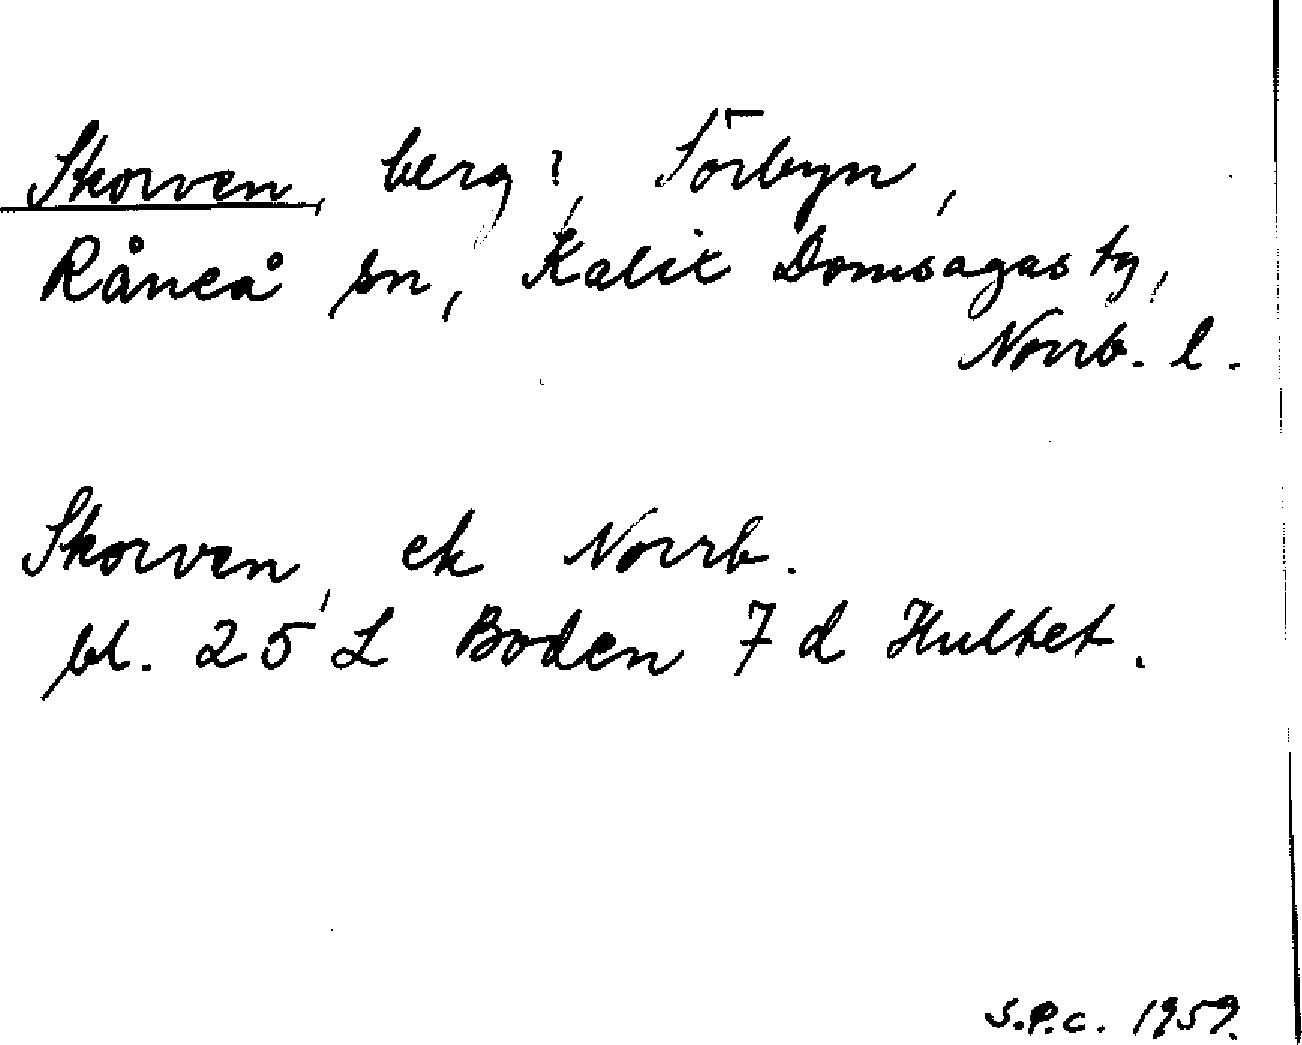 Skorven, berg?, Sörbyn,
Råneå sn, Kalix Domsagas tg,
Norrb. l.
Skorven, ek Norrb.
bl. 25 L Boden 7 d Hultet.
S.P.C. 1959.